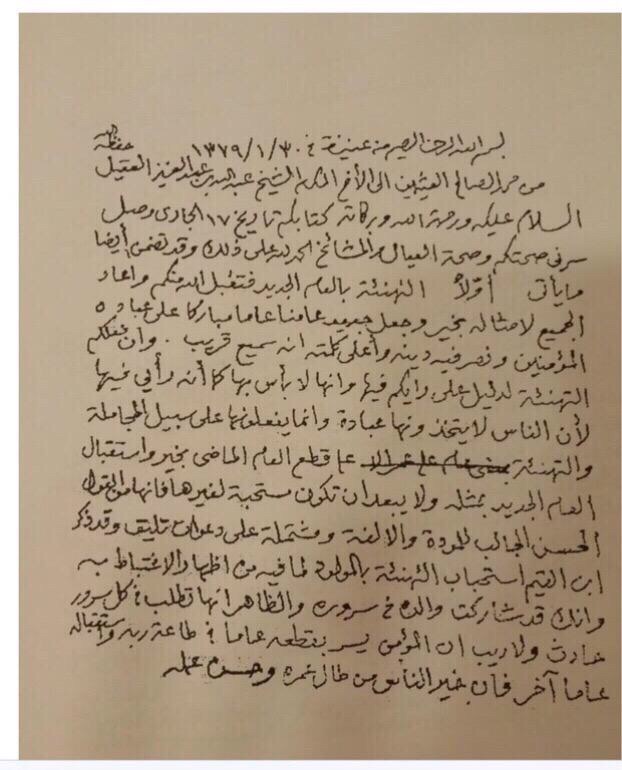 بسم الله الرحمن الرحيم من عنيزة في ٣٠/١/١٣٧٩
من محمد الصالح العثيمين الى الأخ المكرم الشيخ عبدالله بن عبدالعزيز العقيل حفظه الله
السلام عليكم ورحمة الله وبركاته كتابكم تاريخ ١٧ الجاري وصل
سرني صحتكم وصحة العيال والمشائخ الحمد لله على ذلك وقد تضمن أيضا
ما يأتي أولاً التهنئة بالعام الجديد فتقبل الله منكم وأعاد
الجميع لامثاله بخير وجعل جديد عامنا عاما مباركا على عباده
المؤمنين ونصر فيه دينه وأعلى كلمته انه سميع قريب . وان فعلكم
التهنئة لدليل على رأيكم فيها وانها لا بأس بها كما أنه رأيي فيها
لأن الناس لا يتخذونها عبادة وانما يفعلونها على سبيل المجاملة
والتهنئة على قطع العام الماضي بخير واستقبال
العام الجديد بمثله ولا يبعد ان تكون مستحبة لغيرها فانها من القول
الحسن الجالب للمودة والالفة ومشتملة على دعوات تليق وقد ذكر
ابن القيم استحباب التهنئة بالمولود لما فيه من اظهار الاغتباط به
وانك قد شاركت والده في سروره والظاهر انها تطلب في كل سرور
حادث ولا ريب ان المؤمن يسر بقطعه عاما في طاعة ربه واستقباله
عاما آخر فان خير الناس من طال عمره وحسن عمله